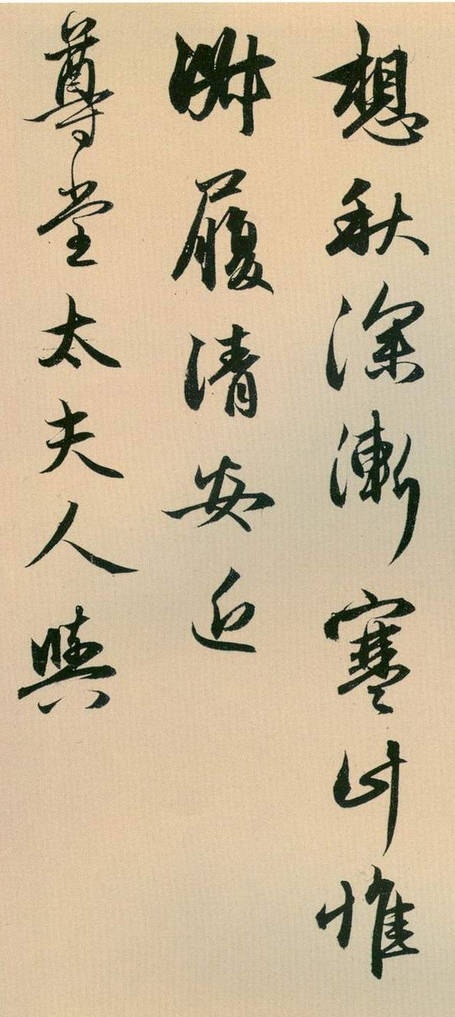 想秋深漸寒計惟
履清安近
尊堂太夫人與